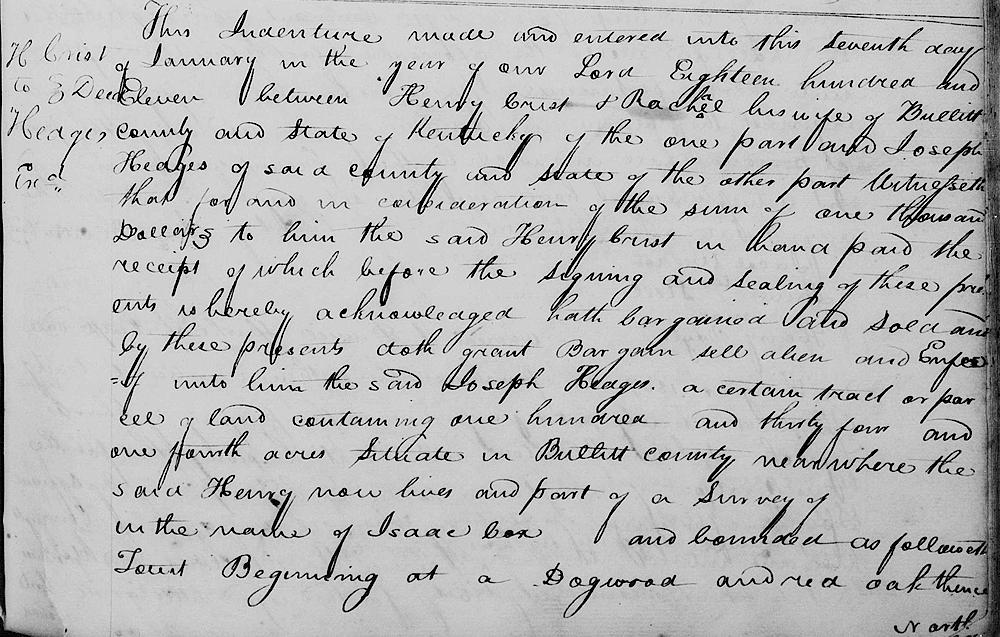 H Crist
to } Deed
Hedges
Exd
This Indenture made and entered into this seventh day
of January in the year of our Lord Eighteen hundred and
Eleven between Henry Crist & Rachel his wife of Bullitt
county and state of Kentucky of the one part and Joseph
Hedges of said county and state of the other part Witnesseth
that for and in consideration of the sum of one thousand
Dollars to him the said Henry Crist in hand paid the
receipt of which before the signing and sealing of these pres
ents is hereby acknowledged hath bargained and sold and
by these presents doth grant Bargain sell alien and Enfeo
=f unto him the said Joseph Hedges. a certain tract or par
cel of land containing one hundred and thirty four and
one fourth acres Situate in Bullitt county near where the
said Henry now lives and part of a Survey of
in the name of Isaac Cox and bounded as followeth
Towit Beginning at a Dogwood and red oak thence
North